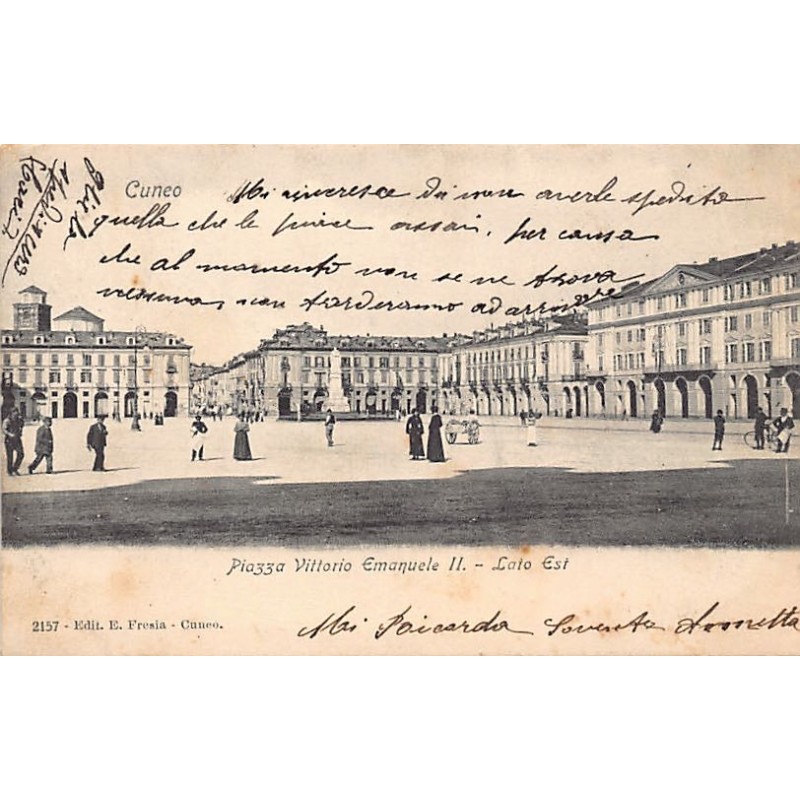 Cuneo
Mi rincresce di non averle spedita
quella che le piace assai, per causa
che al momento non se ne trova
nessuna, non tarderanno ad arrivare
Gliela
Piazza Vittorio Emanuele II. - Lato Est
2157 - Edit. E. Fresia - Cuneo.
Mi Ricorda Sovente